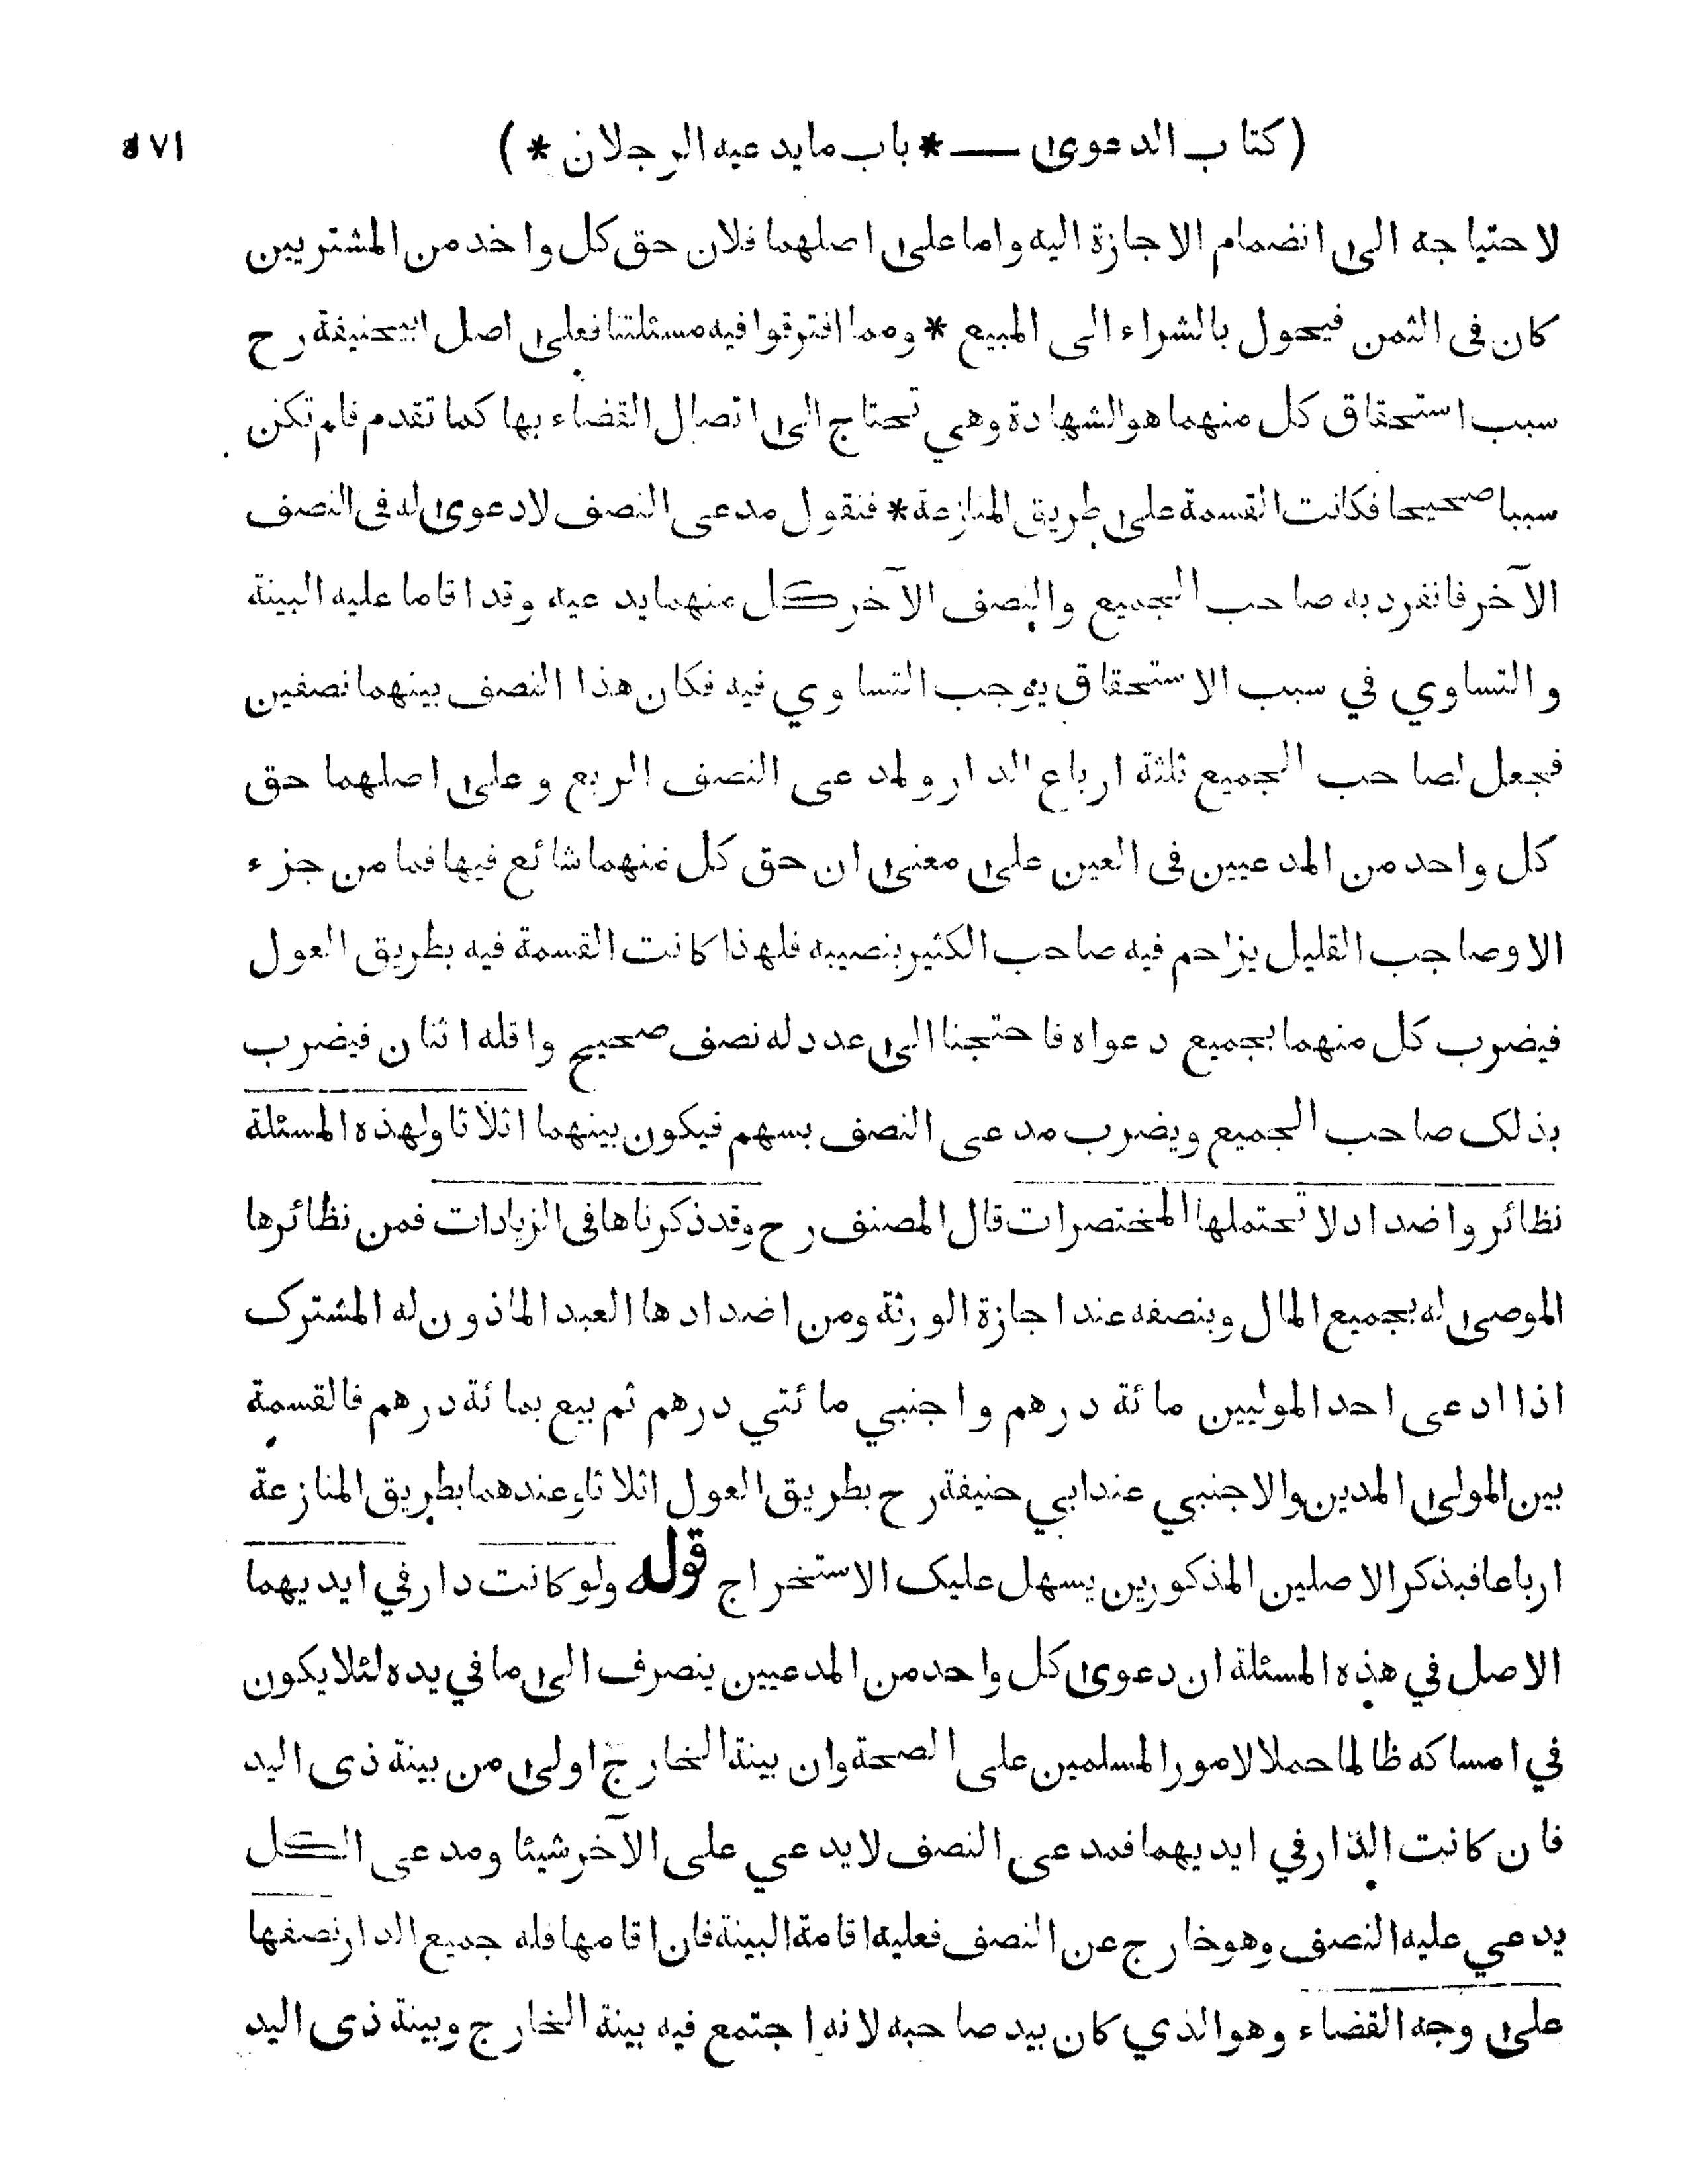 (كتاب الدعوى — * باب ما يدعيه الرجلان *) ١٧٥
لاحتياجه الى انضمام الاجازة اليه واما على اصلهما فلان حق كل واحد من المشتريين
كان فى الثمن فيحول بالشراء الى المبيع * ومما افترقوا فيه مسئلتنا فعلى اصل ابيحنيفة رح
سبب استحقاق كل منهما هو الشهادة وهي تحتاج الى اتصال القضاء بها كما تقدم فلم تكن
سببا صحيحا فكانت القسمة على طريق المنازعة * فنقول مدعى النصف لا دعوى له فى النصف
الآخر فانفرد به صاحب الجميع والنصف الآخر كل منهما يدعيه وقد اقاما عليه البينة
والتساوي في سبب الاستحقاق يوجب التساوي فيه فكان هذا النصف بينهما نصفين
فجعل لصاحب الجميع ثلثة ارباع الدار ولمدعى النصف الربع وعلى اصلهما حق
كل واحد من المدعيين فى العين على معنى ان حق كل منهما شائع فيها فما من جزء
الا وصاحب القليل يزاحم فيه صاحب الكثير بنصيبه فلهذا كانت القسمة فيه بطريق العول
فيضرب كل منهما بجميع دعواه فاحتجنا الى عدد له نصف صحيح واقله اثنان فيضرب
بذلك صاحب الجميع ويضرب مدعى النصف بسهم فيكون بينهما اثلاثا ولهذه المسئلة
نظائر واضداد لا تحتملها المختصرات قال المصنف رح وقد ذكرناها فى الزيادات فمن نظائرها
الموصى له بجميع المال وبنصفه عند اجازة الورثة ومن اضدادها العبد الماذون له المشترك
اذا ادعى احد الموليين مائة درهم واجنبي مائتي درهم ثم بيع بمائة درهم فالقسمة
بين المولى المدين والاجنبي عند ابي حنيفة رح بطريق العول اثلاثا وعندهما بطريق المنازعة
ارباعا فبذكر الاصلين المذكورين يسهل عليك الاستخراج قوله ولو كانت دار في ايديهما
الاصل في هذه المسئلة ان دعوى كل واحد من المدعيين ينصرف الى ما في يده لئلا يكون
في امساكه ظالما حملا لامور المسلمين على الصحة وان بينة الخارج اولى من بينة ذى اليد
فان كانت الدار في ايديهما فمدعى النصف لا يدعي على الآخر شيئا ومدعى الكل
يدعي عليه النصف وهو خارج عن النصف فعليه اقامة البينة فان اقامها فله جميع الدار نصفها
على وجه القضاء وهو الذي كان بيد صاحبه لانه اجتمع فيه بينة الخارج وبينة ذى اليد